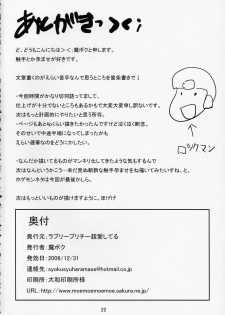 あとがきっく；
ど、どうもこんにちは＞＜；魔ボクと申します。
触手とか孕ませが好きです。
文章書くのがえらい苦手なんで思うところを箇条書きで！
・今回時間がかなり切羽詰ってまして、
仕上げが十分でないところもあるかもで大変大変申し訳ないです。
次はもっと計画的にやりたいと思う所存。
・ページもあと4pくらい描きたかったんですけど泣く泣く断念
そのせいで中途半端になってるかもですが、
えらい遅筆なので今の自分ではこれが限界かも…
・なんだか描いてるものがマンネリ化してきたような気もするんで
次はなんというか こう… 未だ見ぬ斬新な触手孕ませを描いてみたいすね、と。
ホケモンネタは今回が最後かしら。
次はもっといいものが描けますように。ほげげ
ロックマン
奥付
発行元：ラブリープリチー超愛してる
発行人：魔ボク
発行日：2006/12/31
連絡先：syokusyuharamase@hotmail.co.jp
印刷所：大和印刷所様
URL：http://www.moemoemoemoe.sakura.ne.jp/
22